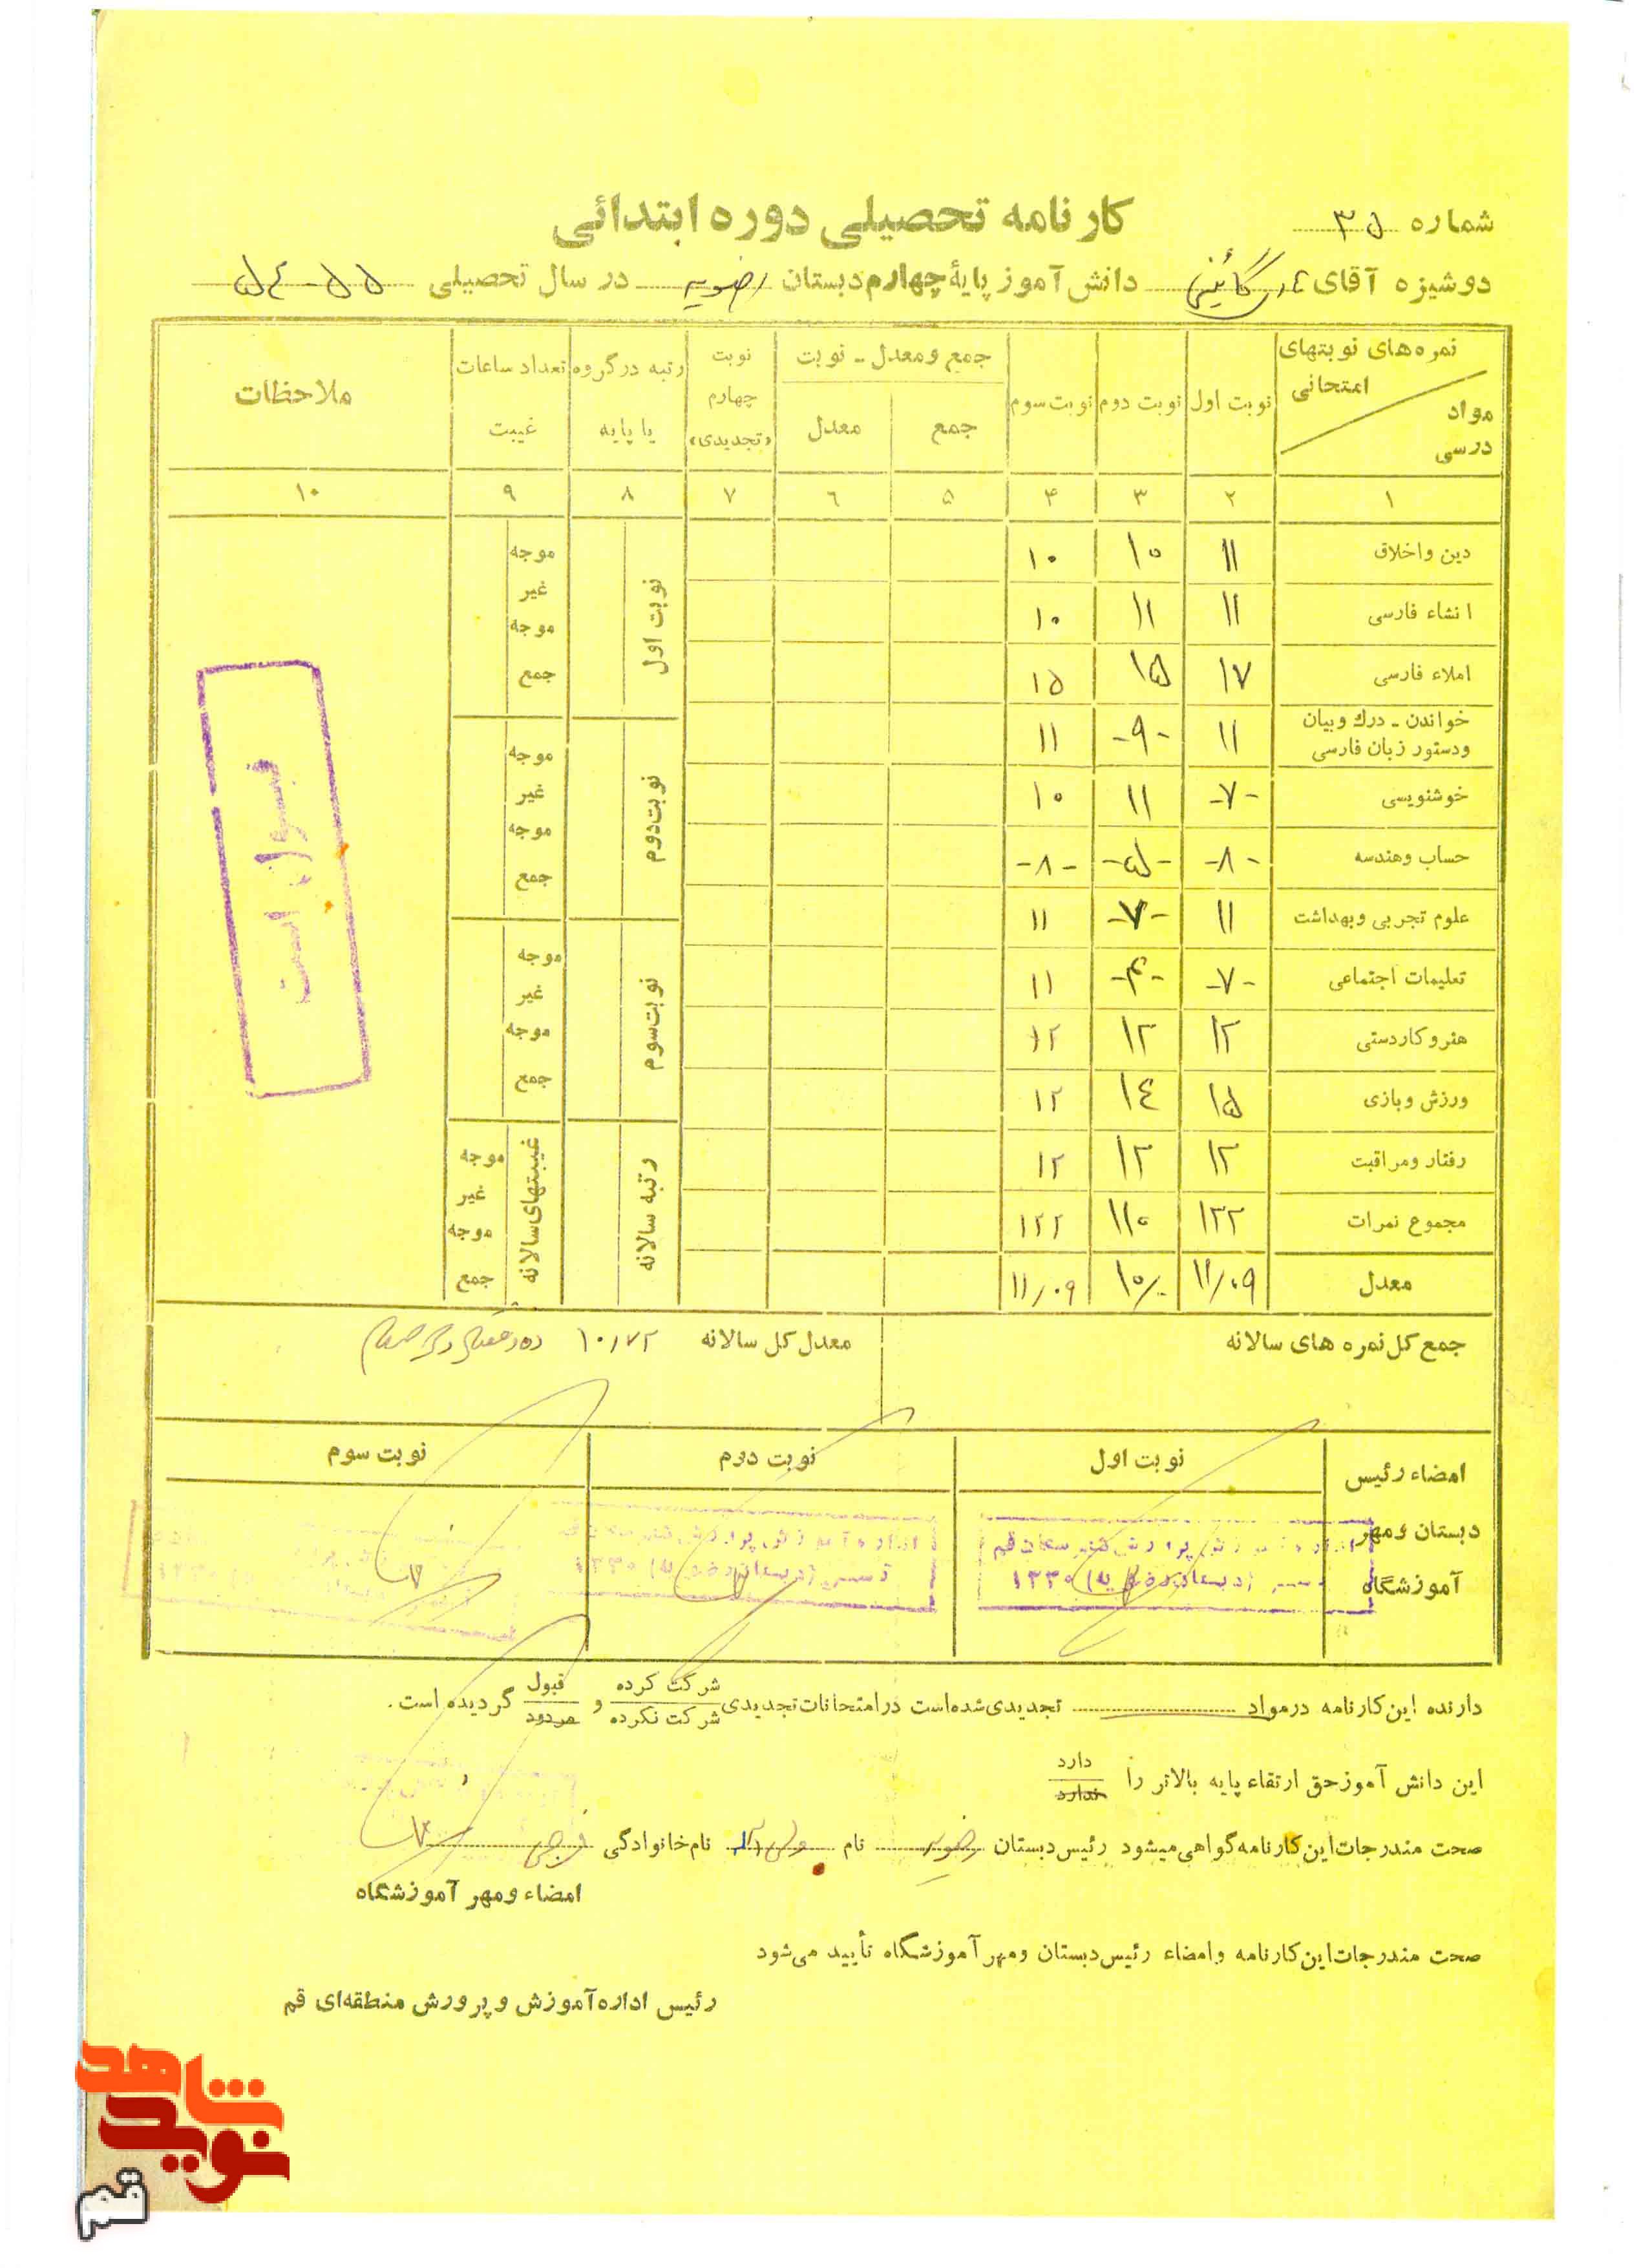 شماره ۳۵
کارنامه تحصیلی دوره ابتدائی
دوشیزه آقای دانش‌آموز پایهٔ چهارم دبستان رضویه در سال تحصیلی ۵۵-۵۴
نمره‌های نوبتهای امتحانی
مواد درسی
نوبت اول
نوبت دوم
نوبت سوم
جمع و معدل - نوبت
جمع
معدل
نوبت چهارم «تجدیدی»
رتبه در گروه یا پایه
تعداد ساعات غیبت
ملاحظات
۱ ۲ ۳ ۴ ۵ ۶ ۷ ۸ ۹ ۱۰
دین و اخلاق ۱۱ ۱۰ ۱۰
انشاء فارسی ۱۱ ۱۱ ۱۰
املاء فارسی ۱۷ ۱۵ ۱۵
خواندن - درك و بیان ودستور زبان فارسی ۱۱ -۹- ۱۱
خوشنویسی -۷- ۱۱ ۱۰
حساب وهندسه -۸- -۵- -۸-
علوم تجربی وبهداشت ۱۱ -۷- ۱۱
تعلیمات اجتماعی -۷- -۴- ۱۱
هنر و کاردستی ۱۲ ۱۲ ۱۲
ورزش وبازی ۱۵ ۱۴ ۱۲
رفتار ومراقبت ۱۲ ۱۲ ۱۲
مجموع نمرات ۱۲۲ ۱۱۰ ۱۲۲
معدل ۱۱/۰۹ ۱۰/۰ ۱۱/۰۹
نوبت اول
موجه
غیر موجه
جمع
نوبت دوم
موجه
غیر موجه
جمع
نوبت سوم
موجه
غیر موجه
جمع
رتبه سالانه
غیبتهای سالانه
موجه
غیر موجه
جمع
جمع کل نمره های سالانه
معدل کل سالانه ۱۰/۷۲
امضاء رئیس دبستان ومهر آموزشگاه
نوبت اول
نوبت دوم
نوبت سوم
دارنده این کارنامه درمواد تجدیدی شده‌است در امتحانات تجدیدی شرکت کرده شرکت نکرده و قبول مردود گردیده است.
این دانش آموز حق ارتقاء پایه بالاتر را دارد ندارد
صحت مندرجات این کارنامه گواهی میشود رئیس دبستان رضویه نام نام خانوادگی فرجی
امضاء ومهر آموزشگاه
صحت مندرجات این کارنامه وامضاء رئیس دبستان ومهر آموزشگاه تأیید می‌شود
رئیس اداره آموزش و پرورش منطقه‌ای قم
نوید شاهد
قم